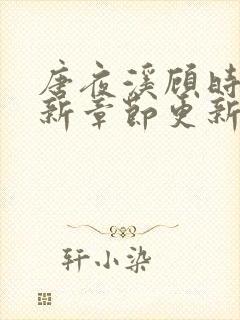 唐夜溪顾时
新章节更新
轩小染